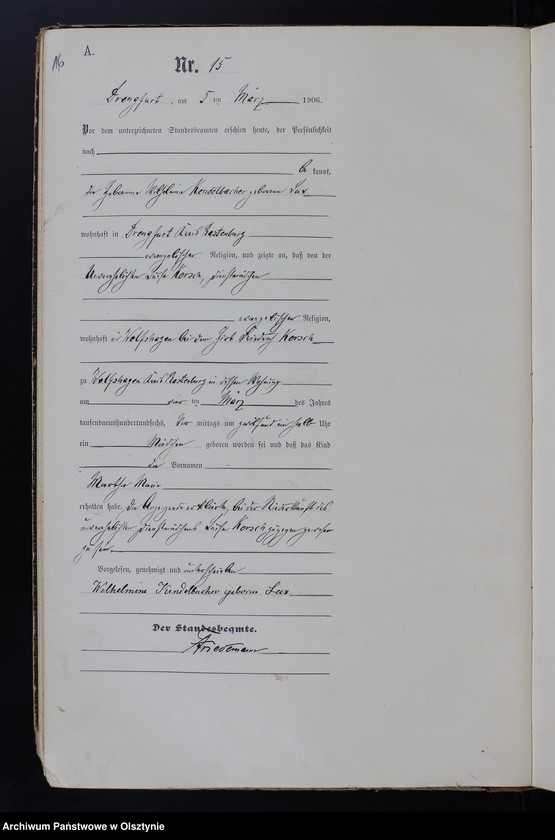 16
A.
Nr. 15
Drengfurt, am 5 ten März 1906.
Vor dem unterzeichneten Standesbeamten erschien heute, der Persönlichkeit
nach
be kannt,
die Hebamme Wilhelmine Kendelbacher geborene Lux
wohnhaft in Drengfurt Kreis Rastenburg
evangelischer Religion, und zeigte an, daß von der
Unverehelichten Luise Korsch, Dienstmädchen
evangelischer Religion,
wohnhaft in Wolfshagen bei dem Hirt Friedrich Korsch
zu Wolfshagen Kreis Rastenburg in dessen Wohnung
am vier ten März des Jahres
tausendneunhundertundsechs, Vor mittags um ein halb Uhr
ein Mädchen geboren worden sei und daß das Kind
die Vornamen
Martha Marie
erhalten habe. Die Anzeigende erklärte, bei der Niederkunft des
unverehelichten Dienstmädchens Luise Korsch zugegen gewesen
zu sein.
Vorgelesen, genehmigt und unterschrieben
Wilhelmine Kendelbacher geborene Lux.
Der Standesbeamte.
Friedemann
Archiwum Państwowe w Olsztynie